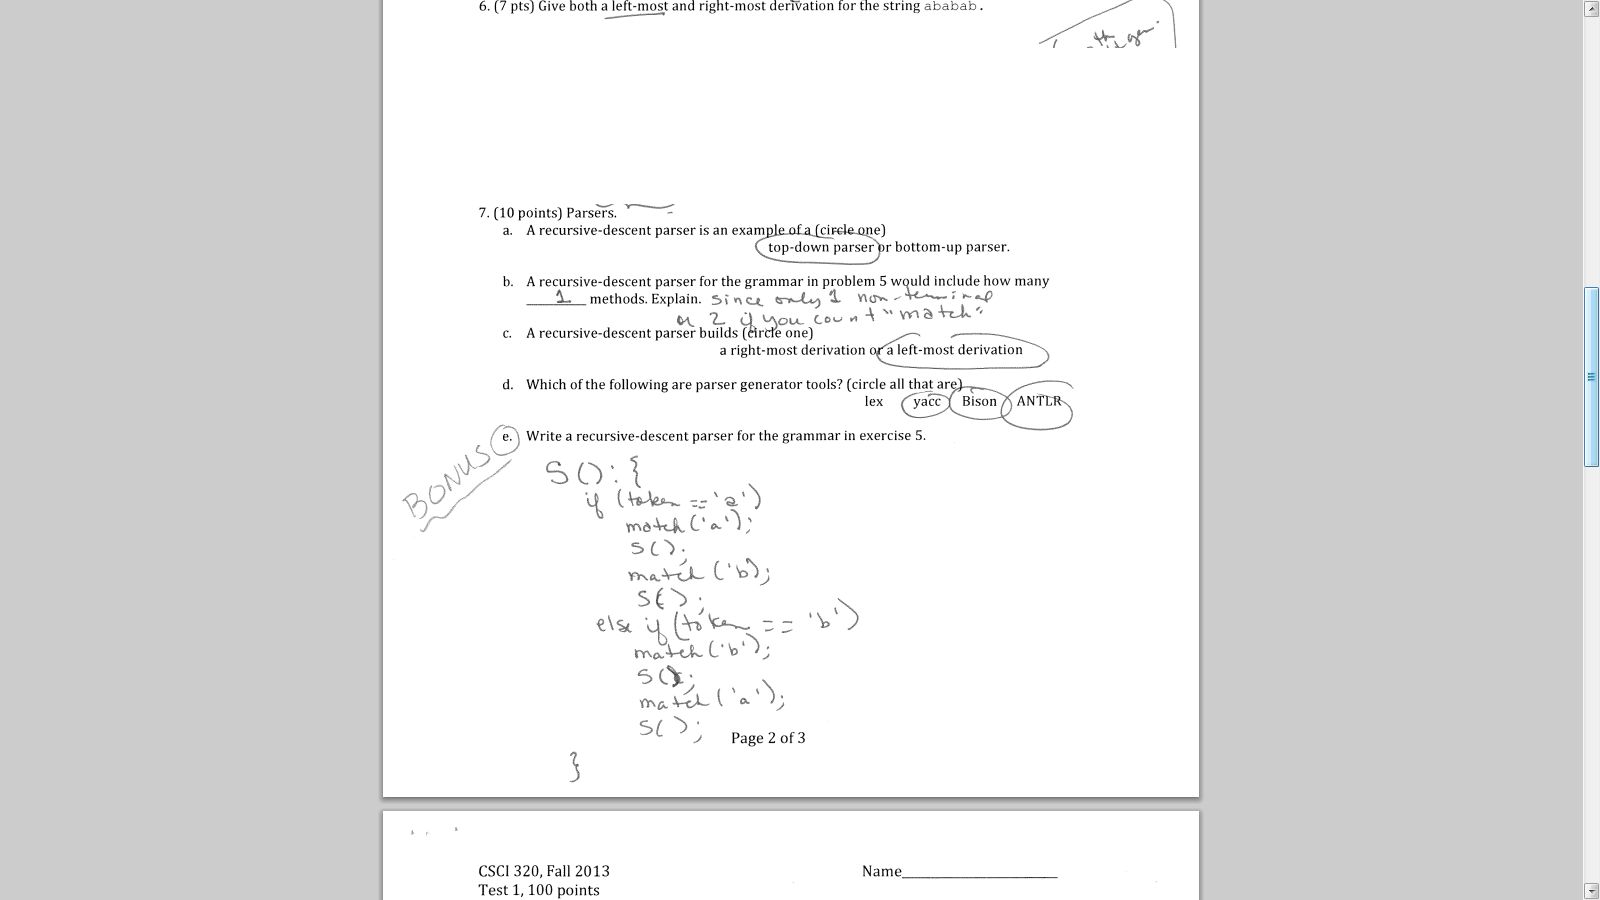 6. (7 pts) Give both a left-most and right-most derivation for the string ababab.
7. (10 points) Parsers.
a. A recursive-descent parser is an example of a (circle one)
top-down parser or bottom-up parser.
b. A recursive-descent parser for the grammar in problem 5 would include how many
1 methods. Explain. since only 1 non-terminal
or 2 if you count "match"
c. A recursive-descent parser builds (circle one)
a right-most derivation or a left-most derivation
d. Which of the following are parser generator tools? (circle all that are)
lex yacc Bison ANTLR
BONUS e. Write a recursive-descent parser for the grammar in exercise 5.
S() : {
if (token == 'a')
match('a');
S();
match('b);
S();
else if (token == 'b')
match('b');
S();
match('a');
S();
Page 2 of 3
}
CSCI 320, Fall 2013 Name
Test 1, 100 points